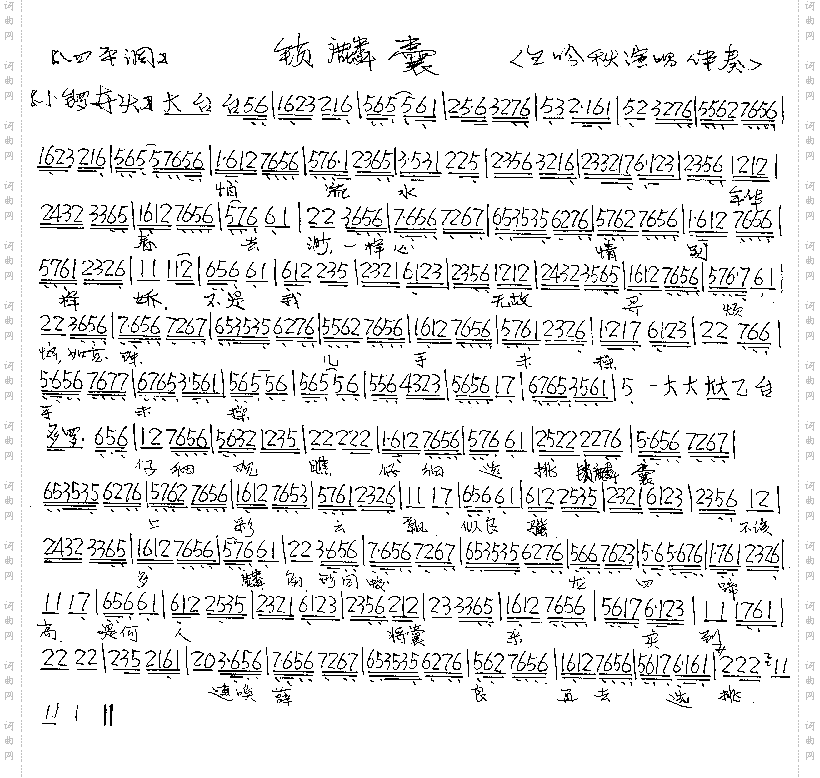 【四平调】 锁麟囊 <王吟秋演唱伴奏>
【小锣夺头】大 台 台 56|1623 216|565 561|256 3276|532·161|52 3276|5562 7656|
1623 216|565 57656|1·612 7656|576·1 2365|3·531 225|2356 3216|2332176·123|2356 1212|
悄 流 水 年华
2432 3365|1612 7656|576 61|22 3656|7·656 7267|653535 6276|5762 7656|1·612 7656|
春 去 渺,一样心 情 别
5761 2326|11 112|656 61|612 235|2321 6123|2356 1212|2432 3565|1612 7656|576·7 61|
样 娇, 不是我 无故 寻 烦
22 3656|7·656 7267|653535 6276|5562 7656|1612 7656|5761 2326|1·217 6123|22 766|
恼, 如意 珠 儿 手 未 操
5656 7677|67653·561|565 56|565 56|556 4323|5656 17|67653561|5 一大大大乙台
手 未 操
多罗· 656|12 7656|5632 1235|22 222|1·612 7656|576 61|2522 2276|5·656 7267|
仔细 观 瞧 仔细 选 挑 锁麟 囊
653535 6276|5762 7656|1612 7653|5761 2326|11 17|656 61|612 2535|232 6123|2356 12|
上 彩 云 飘 似良 骥 不该
2432 3365|1612 7656|576 61|22 3·656|7·656 7267|653535 6276|566 7623|5·65676|1·761 2326|
多 麟 四 蹄
11 17|656 61|612 2535|2321 6123|2356 212|23 3365|1612 7656|5617 6·123|11 1761|
高 是何 人 将囊 来 买 到
22 22|235 2161|203·656|7656 7267|653535 6276|562 7656|1612 7656|5617 6·161|222 11
速唤 薛 良 再 去 选 挑
11 1 ‖
词曲网